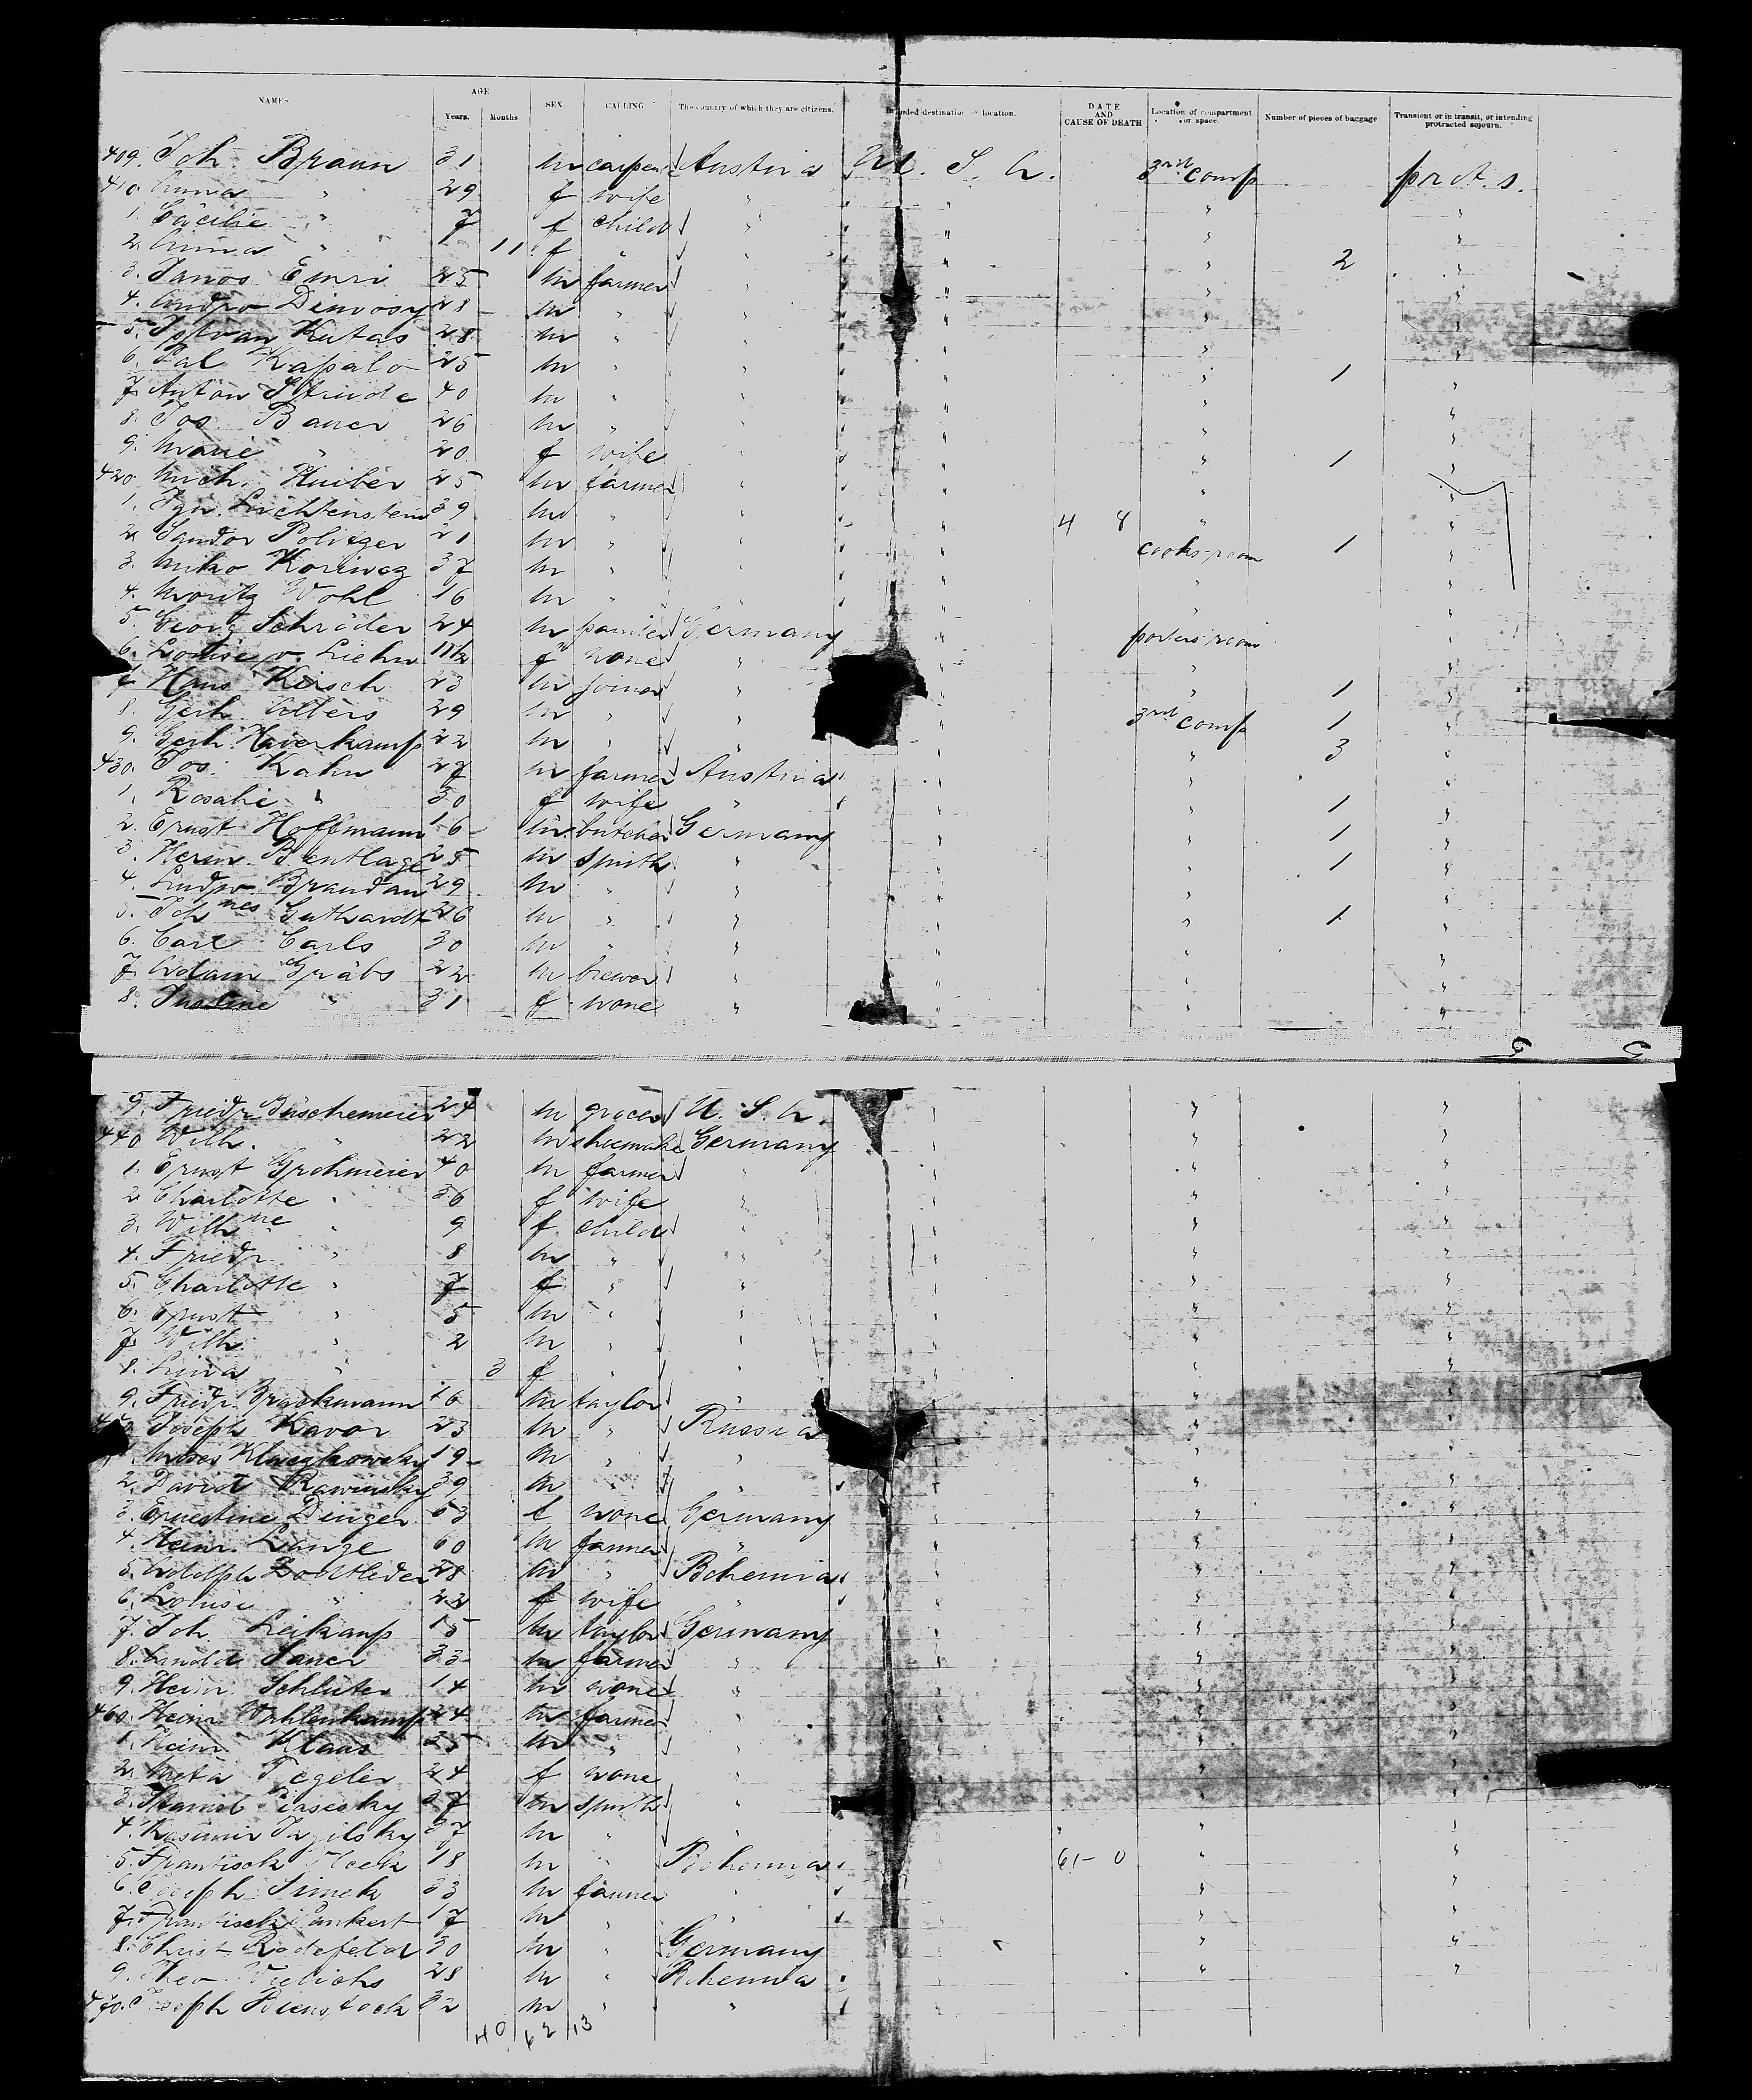 NAMES AGE Years. Months SEX. CALLING The country of which they are citizens. Intended destination or location. DATE AND CAUSE OF DEATH Location of compartment or space. Number of pieces of baggage. Transient or in transit, or intending protracted sojourn.
409. Joh. Braun 31 m carpen Austria U. S. A. 3rd comp prot. s.
410. Anna " 29 f wife " " " "
1. Cäcilie " 7 f child " " " "
2. Anna " 11 f " " " " 2 "
3. Janos Emri 25 m farmer " " " "
4. 28 m " " " " "
5. Istvan Kutas 28 m " " " " "
6. Pal Kapalo 25 m " " " " 1 "
7. Anton 40 m " " " " "
8. Jos. Bauer 26 m " " " " "
9. Marie " 20 f wife " " " 1 "
420. Mich. Huiber 25 m farmer " " " "
1. Ign. Lichtenstein 39 m " " " 4 8 " "
2. Sandor Politzer 21 m " " " cooks-room 1 "
3. Miko 37 m " " " " "
4. Moritz Wohl 16 m " " " " "
5. Georg Schröder 24 m painter Germany " porters room "
6. Louise v. Liehn 11½ f none " " " "
7. Hans Kirsch 23 m joiner " " " 1 "
8. Gerh. Albers 29 m " " " 3rd comp 1 "
9. Gerh. Haverkamp 22 m " " " " 3 "
430. Jos. Kahn 27 m farmer Austria " " "
1. Rosalie " 30 f wife " " " 1 "
2. Ernst Hoffmann 16 m butcher Germany " " 1 "
3. Herm. Bentlage 25 m smith " " " 1 "
4. Ludw. Brandau 29 m " " " " "
5. Johnes Guthardt 26 m " " " " 1 "
6. Carl Carls 30 m " " " " "
7. Adam Gräbs 22 m brewer " " " "
8. " 31 f none " " " "
9. Friedr. Büschemeier 24 m grocer U. S. A. " " "
440 Wilh. " 22 m shoemake Germany " " "
1. Ernst Grohmeier 40 m farmer " " " "
2. Charlotte " 36 f wife " " " "
3. Wilhne " 9 f child " " " "
4. Friedr. " 8 m " " " " "
5. Charlotte " 7 f " " " " "
6. Ernst " 5 m " " " " "
7. Wilh. " 2 m " " " " "
8. Lina " 3 f " " " " "
9. Friedr. Brackmann 16 m taylor " " " "
450 Joseph Kavor 23 m " Russia " " "
1. Moses 19 m " " " " "
2. David Rawinsky 39 m " " " " "
3. Ernestine Dinger 53 f none Germany " " "
4. Heinr. Lange 60 m farmer " " " "
5. Adolph 28 m " Bohemia " " "
6. Louise " 23 f wife " " " "
7. Joh. Leikamp 15 m taylor Germany " " "
8. Sauer 33 m farmer " " " "
9. Heinr. Schlüter 14 m none " " " "
460. Heinr. Wahlenkamp 24 m farmer " " " "
1. Heinr. Klaus 25 m " " " " "
2. Meta Tegeler 24 f none " " " "
3. 27 m smith " " " "
4. Kasimir 37 m " " " " "
5. Frantisek 18 m " Bohemia " 61- 0 " "
6. Joseph Simek 33 m farmer " " " "
7. Frantisek Pankert 17 m " " " " "
8. Christ. Rodefeld 30 m " Germany " " "
9. Theo. 28 m " Bohemia " " "
470. Joseph Bienstock 32 m " "
40 62 13